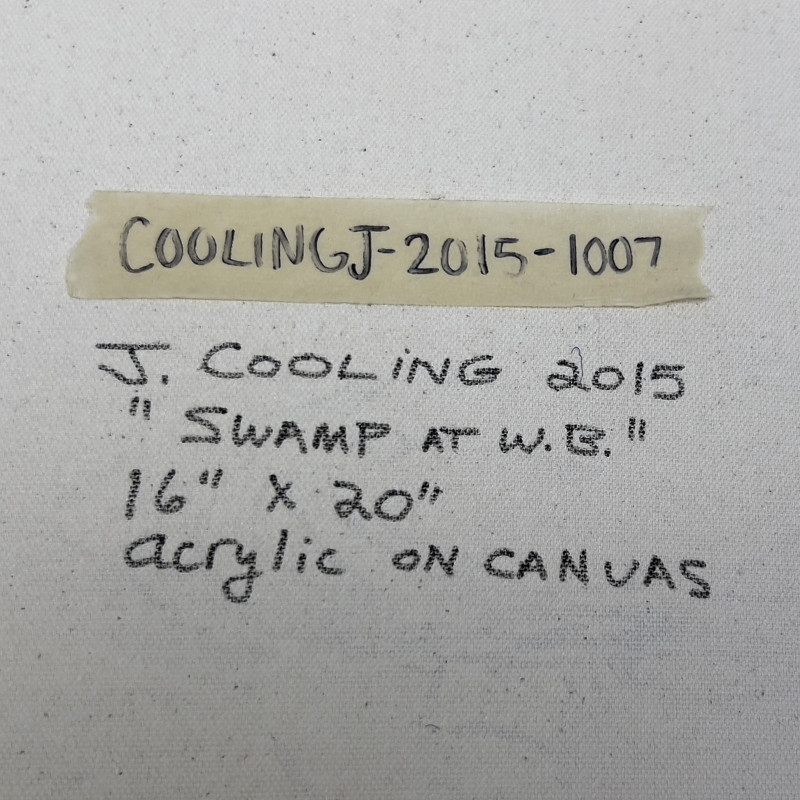 COOLINGJ-2015-1007
J. COOLING 2015
"SWAMP AT W.B."
16" X 20"
acrylic ON CANVAS